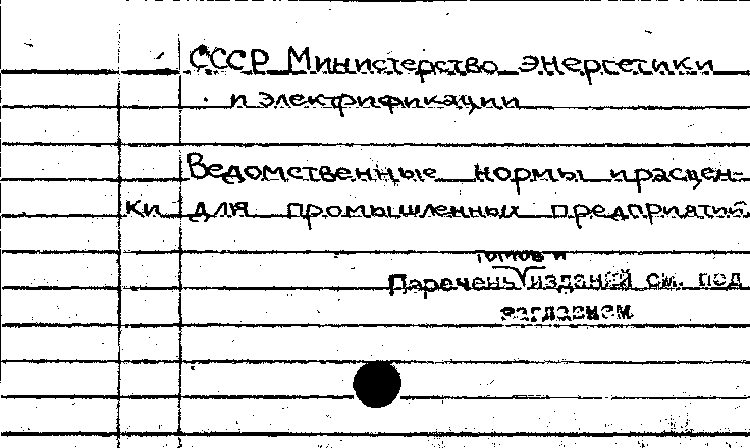 СССР Министерство энергетики
и электрификации
Ведомственные нормы и расцен-
ки для промышленных предприятий
томов и
Перечень изданий см. под
заглавием